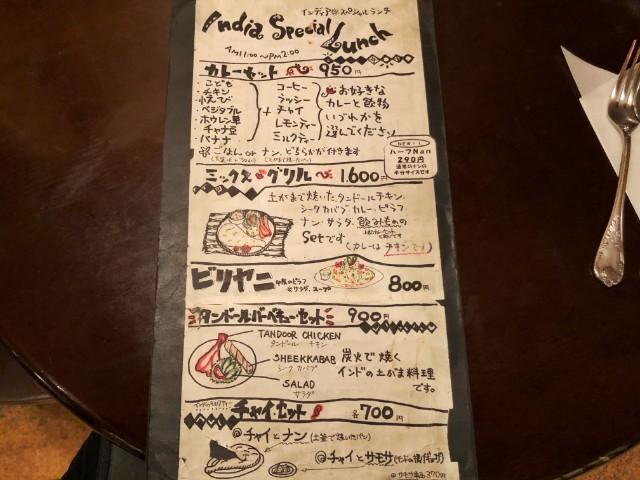 インディアンスペシャルランチ
India Special Lunch
AM11:00〜PM2:00
カレーセット 950円
・こども
・チキン
・小えび
・ベジタブル
・ホウレン草
・チャナ豆
・バナナ
+
コーヒー
ラッシー
チャイ
レモンティー
ミルクティー
お好きな
カレーと飲物
いづれかを
選んでください
ごはん or ナン、どちらかが付きます
NEW!!
ハーフNan
290円
通常のナンの
半分サイズです
ミックスグリル 1.600円
土がまで焼いた、タンドールチキン、
シークカバブ、カレー、ピラフ、
ナン・サラダ、飲みもの
Setです
(カレーは チキン です)
ビリヤニ 800円
サラダ、スープ
タンドールバーベキューセット 900円
TANDOOR CHICKEN
タンドール チキン
SHEEKKABAB
シーク カバブ
SALAD
サラダ
炭火で焼く
インドの土がま料理
です。
チャイセット 各700円
@チャイとナン(土釜で焼いたパン)
@チャイとサモサ(インドの揚げギョウザ)
@サモサ単品 370円